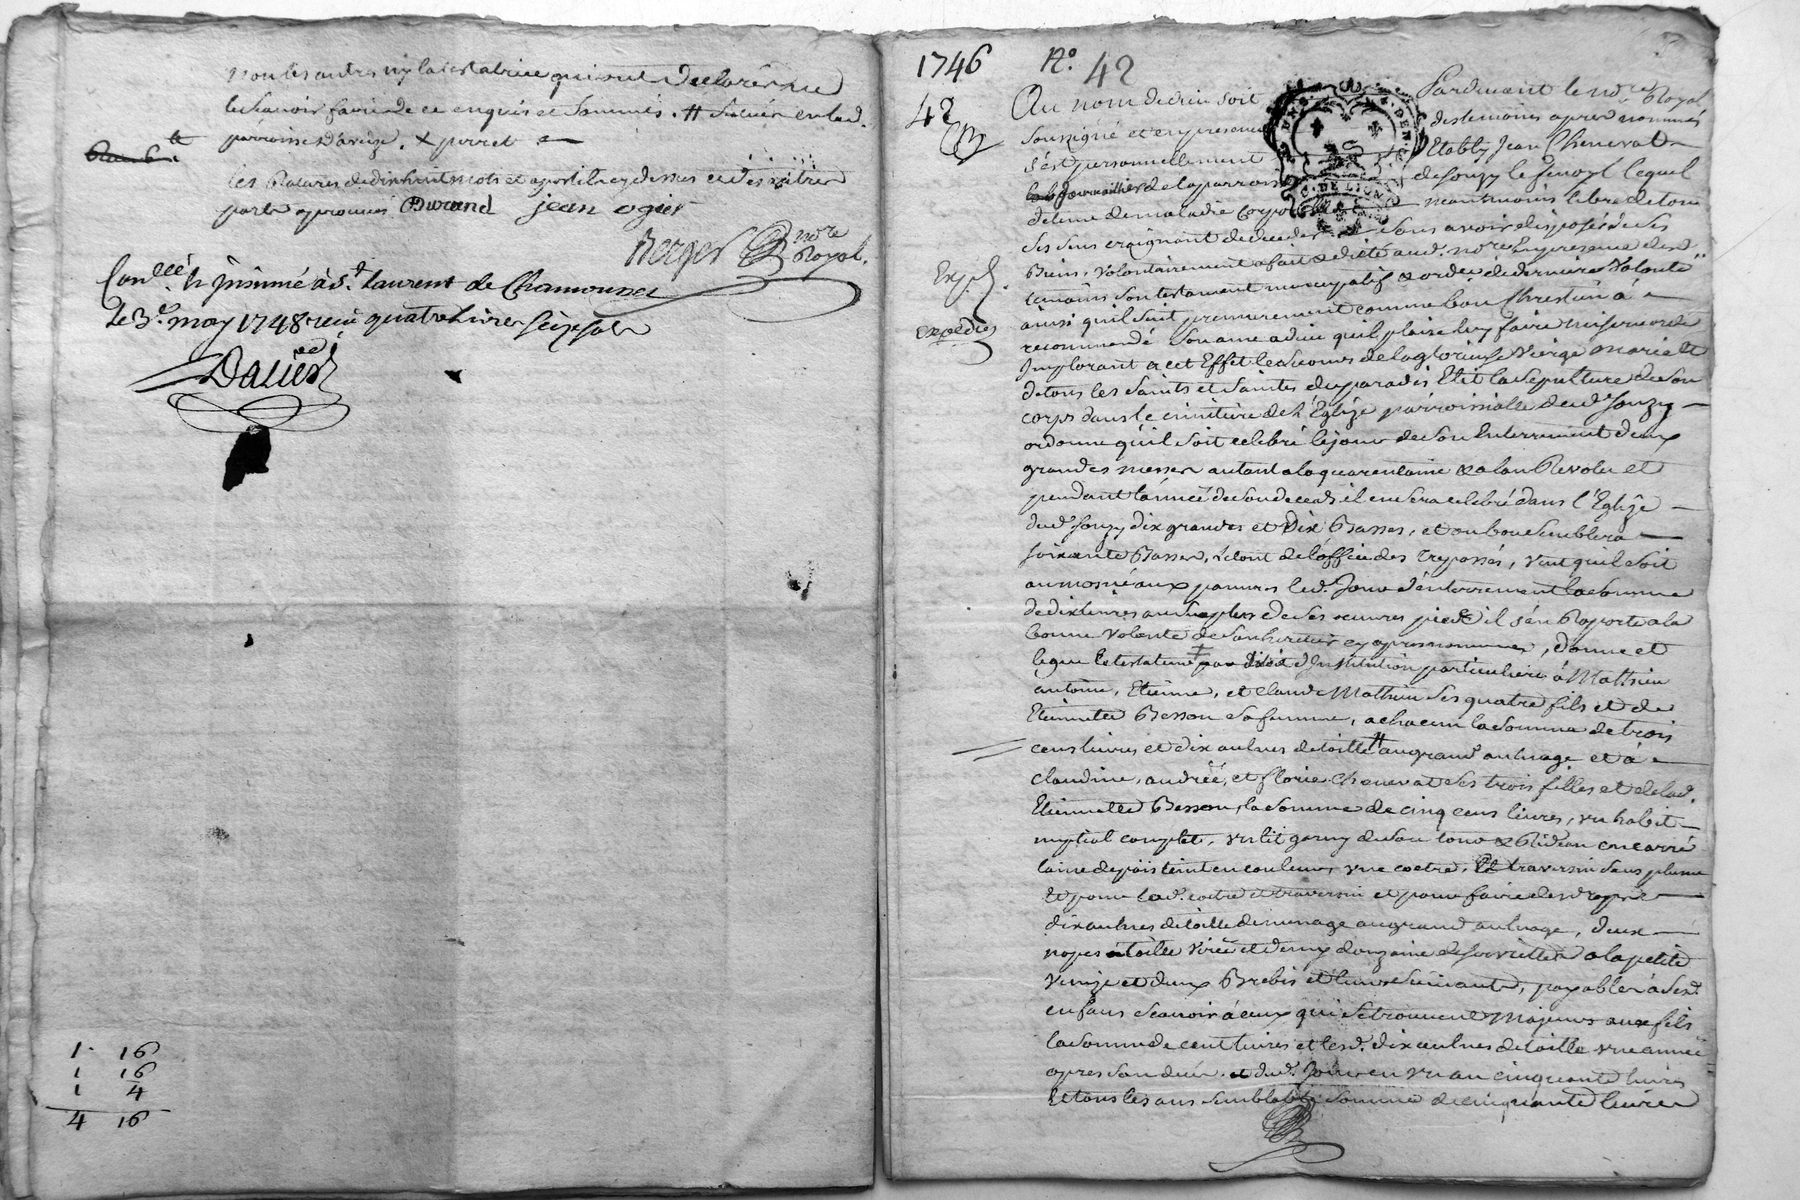 non les autres ny la testatrice qui ont declaré ne
le scavoir faire de ce enquis et sommés. # scituée en lad.
parroisse d'aveize. x perret
les ratures de dix huit mots et apostile cy dessus et des autres
parts approuvés Durand jean ogier
Berger nore Royal.
Con.llé & jnsinué à St. Laurent de Chamousset
le 3e. may 1748 reçu quatre livres seize sols
Dalier
1. 16
1 16
1 4
4 16
1746 No. 42
42
Au nom de dieu soit Pardevant le nore Royal
soussigné et en presence des temoins apres nommés
s'est personnellement Etably Jean Chenevat
de la parroisse de Souzy le lequel
detenu de maladie corporelle neantmoins libre de tous
ses sens craignant de deceder sans avoir disposé de ses
Biens, volontairement a fait & dicté aud. nore En presence desd.
temoins son testament nuncupatif & ordce de derniere volonté
Exp.
expediés
ainsi qu'il suit premierement comme bon Chrestien a
recommandé son ame a dieu qu'il plaise luy faire misericorde
Jmplorant a cet Effet le secours de la glorieuse Vierge marie et
de tous les saints et saintes du paradis Elit la sepulture de son
corps dans le cimitiere de l'Eglize parroissialle dud. Souzy
ordonne qu'il soit celebré le jour de son Enterrement deux
grandes messes autant a la quarentaine & a l'an Revolu et
pendant l'année de son decedz il en sera celebré dans l'Eglize
dud. souzy dix grandes et Dix Basses, et ou bon semblera
soixante Basses, le tout de l'office des trepassés, veut qu'il soit
aumosné aux pauvres led. Jour d'enterrement la somme
de dix livres au surplus de ses oeuvres pieds il s'en Raporte a la
bonne volonté de son heritier cy apres nommé, donne et
legue le testateur par d'Jnstitution particuliere à Mathieu
antoine, Etienne, et claude Mathieu ses quatre fils et de
Etiennette Besson sa femme, a chacun la somme de trois
cens livres et dix aulnes de toille # au grand aulnage et à
claudine, andrée, et florie Chenevat ses trois filles et de lad.
Etiennette Besson, la somme de cinq cens livres, un habit
nuptial complet, un lit garny de son tour & Rideau en carré
laine de païs teint en couleur, une coetre, Et traversin sans plume
Et pour lad. coetre et traversin et pour faire des draps
dix aulnes de toille de menage au grand aulnage, deux
napes a toille virée et demy douzaine de serviettes a la petite
Venize et deux Brebis et leurs suivants, payables à sesd.
enfans scavoir à ceux qui se trouvent Majeurs aux fils
la somme de cent livres et lesd. dix aulnes de toille une année
apres son decés, et dud. Jour en un an cinquante livres
Et tous les ans semblable somme de cinquante livres